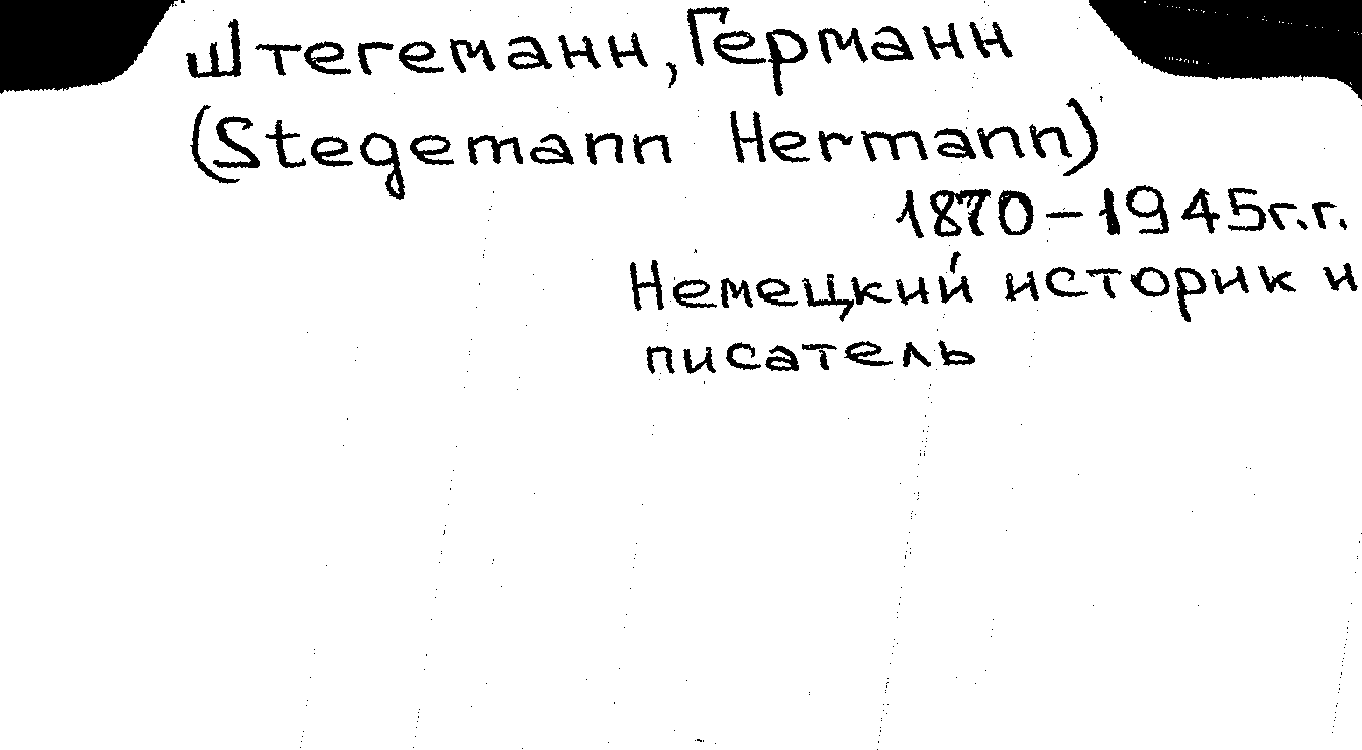 Штегеманн, Германн
(Stegemann Hermann)
1870-1945г.г.
Немецкий историк и
писатель